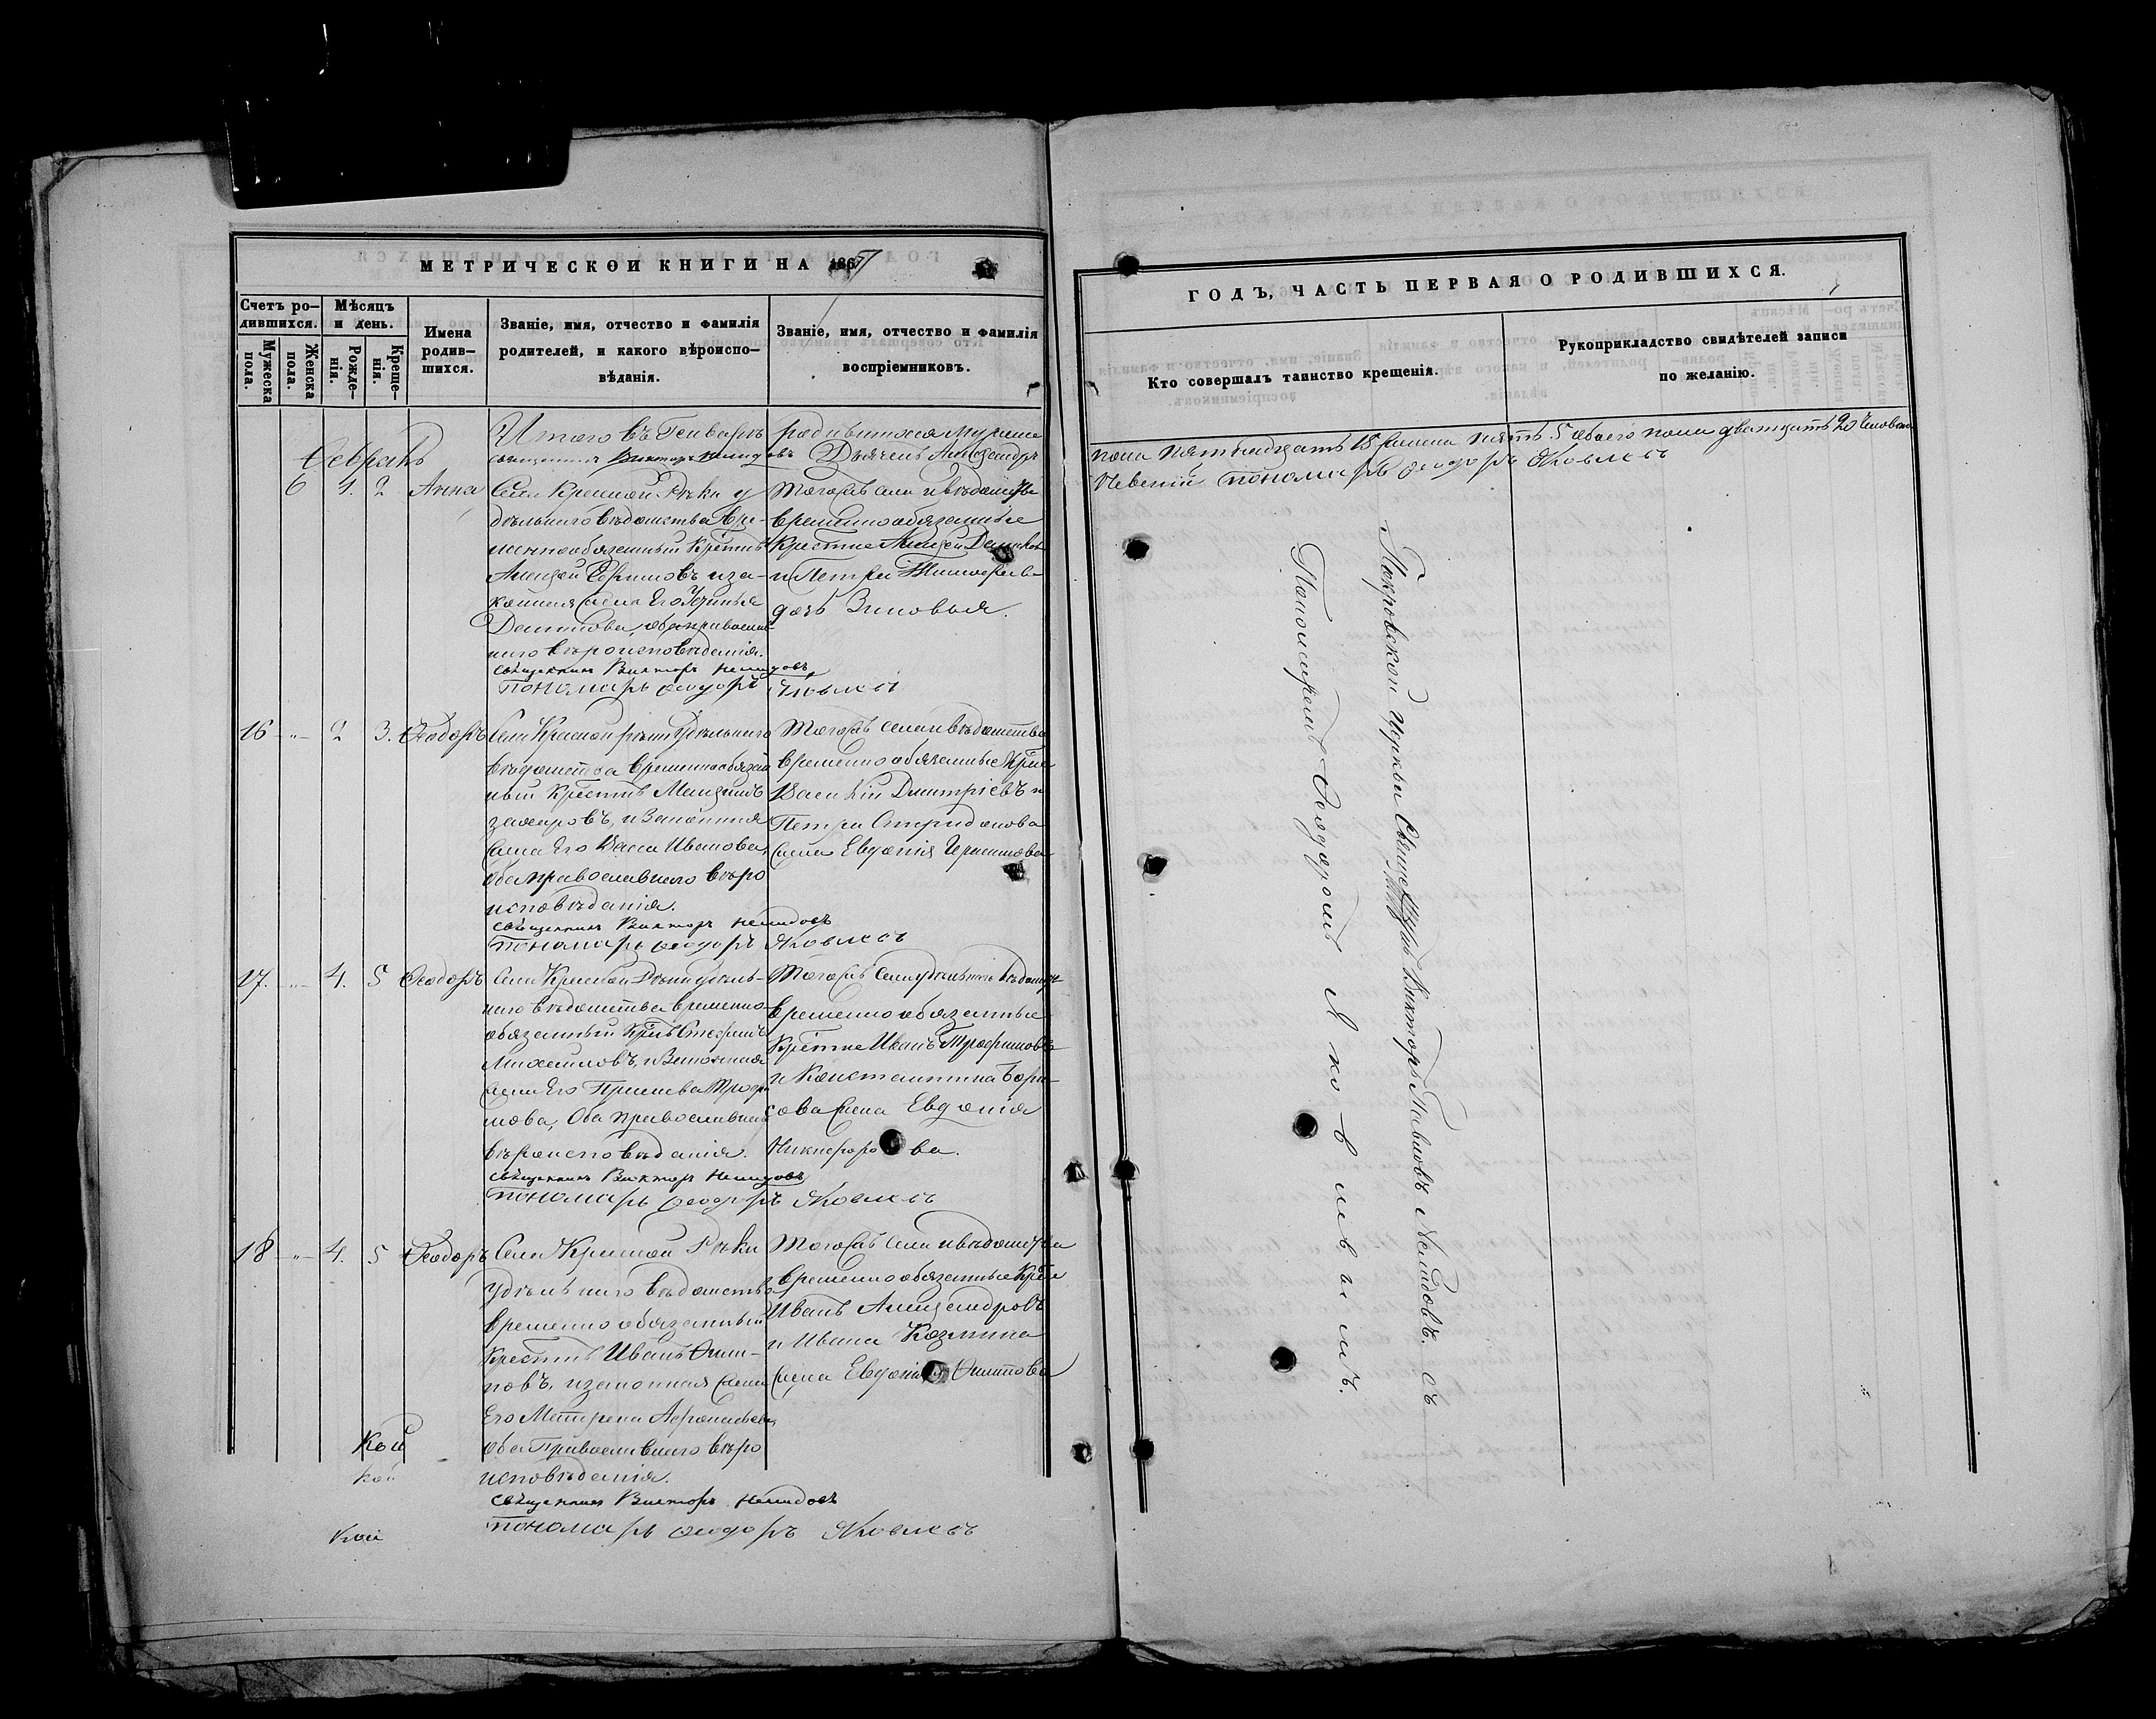 МЕТРИЧЕСКОЙ КНИГИ НА 186
Счетъ ро-
дившихся.
Мѣсяцъ
и день.
Мужеска
пола.
Женска
пола.
Рожде-
нія.
Креще-
нія.
Имена
родив-
шихся.
Званіе, имя, отчество и фамилія
родителей, и какого вѣроиспо-
вѣданія.
Званіе, имя, отчество и фамилія
воспріемниковъ.
Итого въ Генварѣ
Священникъ Викторъ Немидовъ
Февраль
6 1. 2 Анна
Села Красной Рѣки у
дѣльнаго вѣдомства вре-
меннообязанный Крестнъ
Алексѣй Ефимовъ и за-
конная жена Его Устинья
оба православ-
наго вѣроисповѣданія.
Священникъ Викторъ Немидовъ
Пономарь Ѳеодоръ Яковлевъ
родившихся мужеска
Дьячекъ Александръ
Тогожъ села и вѣдомства
временнообязанные
Крестне
и Петра Тимофеева
дочь Зиновья.
16 -"- 2 3. Ѳеодоръ
Села Красной рѣки Удѣльнаго
вѣдомства временнообязан
ный Крестнъ Максимъ
Захаровъ, и Законная
жена Его Васса Иванова,
Оба православнаго вѣро
исповѣданія.
Священникъ Викторъ Немидовъ
Пономарь Ѳеодоръ Яковлевъ
Тогожъ села и вѣдомства
временнообязанные Крне
Василій Дмитріевъ и
Петра Спиридонова
жена Евдокія
17. -"- 4. 5 Ѳеодоръ
Села Красной Рѣки удѣль-
наго вѣдомства временно-
обязанный Крнъ Стефанъ
Михаиловъ, и Законная
жена Его
мова, Оба православнаго
вѣроисповѣданія.
Священникъ Викторъ Немидовъ
Пономарь Ѳеодоръ Яковлевъ
Тогожъ села удѣльнаго вѣдомств
временнообязанные
Крестне Иванъ Трофимовъ
и Константина Бори-
сова жена Евдокія
Никифорова.
18 -"- 4. 5 Ѳеодоръ
Села Красной Рѣки
удѣльнаго вѣдомства
временнообязанный
Крестнъ Иванъ Фили-
повъ, и законная жена
Его Матрена Афонасьева,
оба Православнаго вѣро
исповѣданія.
Священникъ Викторъ Немидовъ
Пономарь Ѳеодоръ Яковлевъ
Тогожъ села и вѣдомства
временнообязанные Крне
Иванъ Александровъ
и Ивана Козмина
жена Евдокія Филипова
Кой
Кой
Кой
ГОДЪ, ЧАСТЬ ПЕРВАЯ О РОДИВШИХСЯ.
Кто совершалъ таинство крещенія.
Рукоприкладство свидѣтелей записи
по желанію.
пола пятнадцать 15 женска пять 5 обоего пола двадцать 20 человекъ
Пономарь Ѳеодоръ Яковлевъ
Покровской Церкви Священникъ Викторъ Павловъ Немидовъ. съ
Пономаремъ Ѳеодоромъ Яковлевымъ.